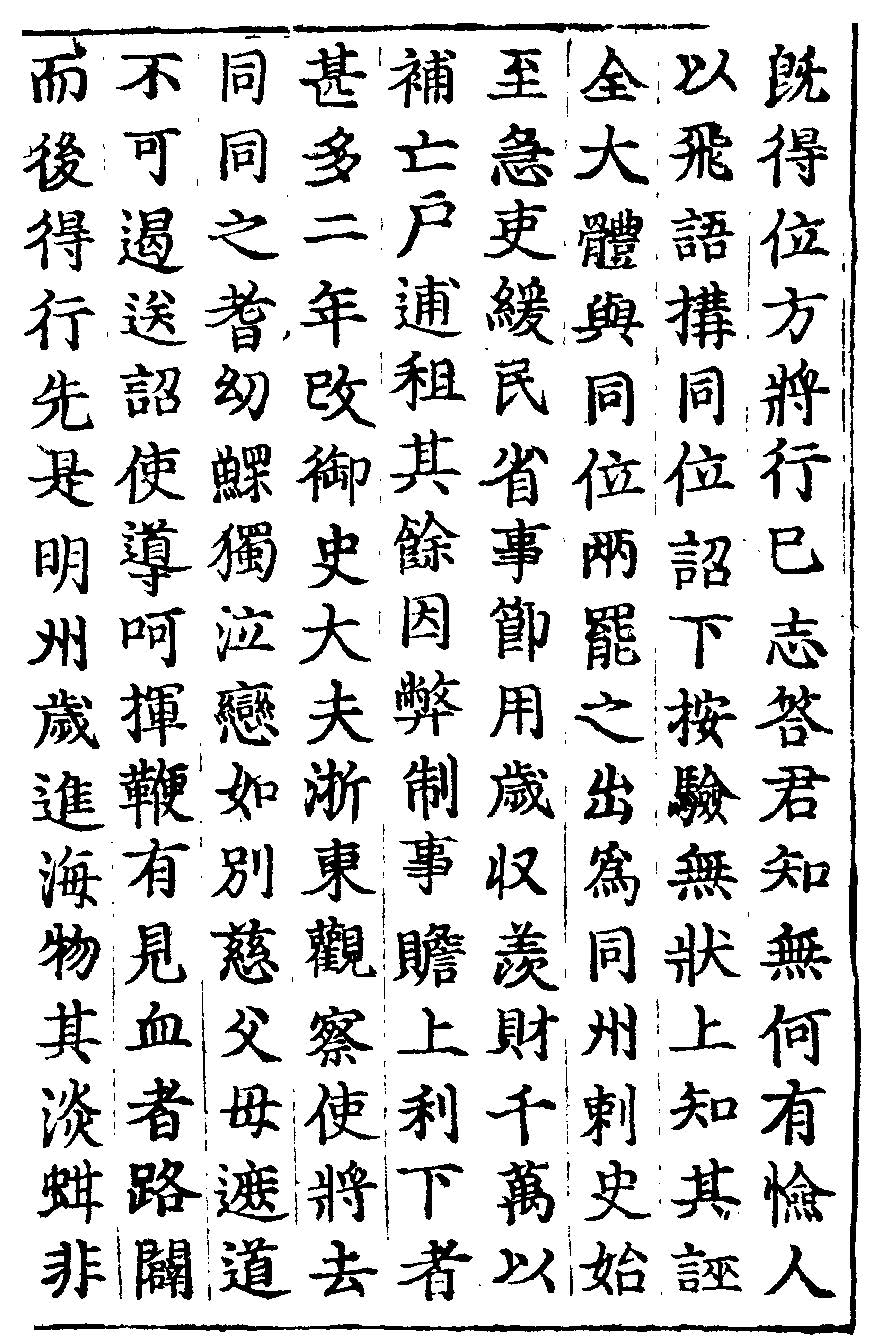 既得位方將行巳志答君知無何有憸人
以飛語搆同位詔下按驗無狀上知其誣
全大體與同位兩罷之出爲同州刺史始
至急吏緩民省事節用歲収羨財千萬以
補亡戶逋租其餘因弊制事贍上利下者
甚多二年改御史大夫浙東觀察使將去
同同之耆幼鰥獨泣戀如別慈父母遮道
不可遏送詔使導呵揮鞭有見血者路闢
而後得行先是明州歲進海物其淡蚶非